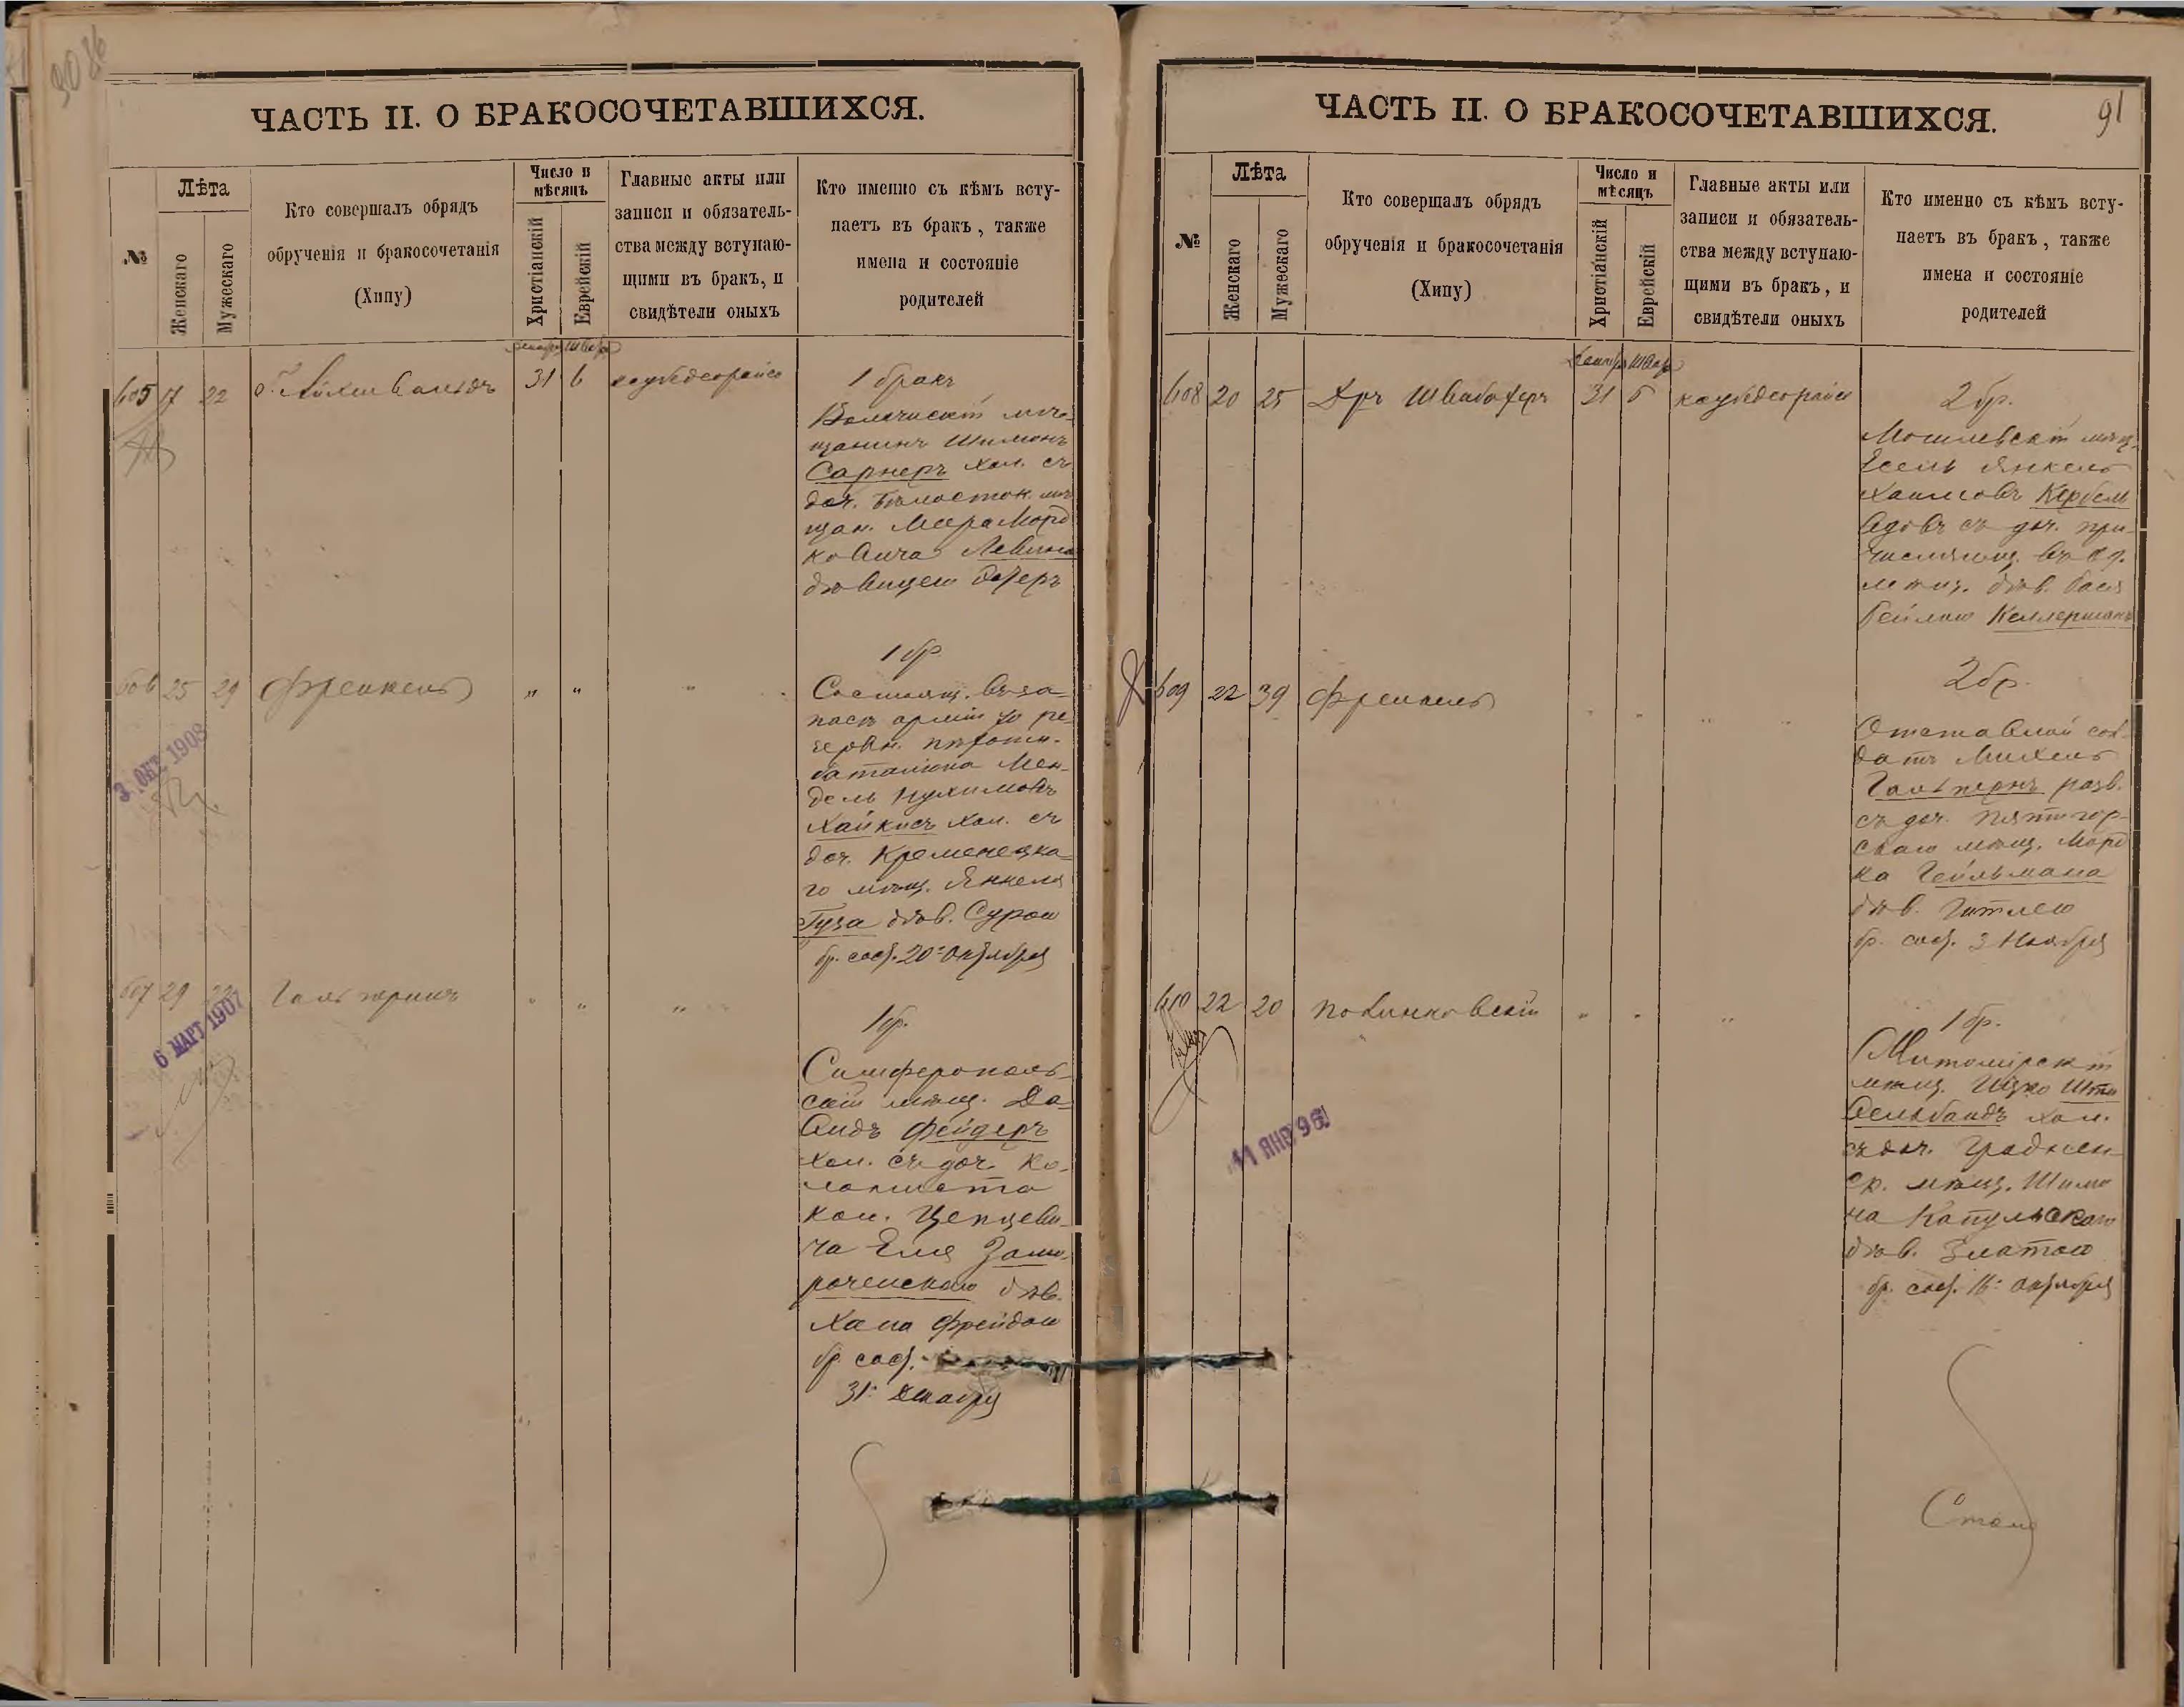 ЧАСТЬ II. О БРАКОСОЧЕТАВШИХСЯ.
№
Лѣта
Женскаго
Мужескаго
Кто совершалъ обрядъ
обрученія и бракосочетанія
(Хипу)
Число и
мѣсяцъ
Христіанскій
Еврейскій
Главные акты или
записи и обязатель-
ства между вступаю-
щими въ бракъ, и
свидѣтели оныхъ
Кто именно съ кѣмъ всту-
паетъ въ бракъ, также
имена и состояніе
родителей
605 17 22 31 6
1 бракъ
мѣ-
щанинъ Шимонъ
Сарнеръ хол. съ
доч. Бѣлосток. мѣ
щан. Меера Морд
ковича Левина
дѣвицею Эстеръ
606 25 29 Френкель " " "
1 бр.
Состоящ. въ за-
пасѣ арміи
зервн. пѣхотн.
баталіона Мен-
дель Нухимовъ
Хайкисъ хол. съ
доч. Кременецка-
го мѣщ. Янкеля
Гуза дѣв. Сурою
бр. сов. 20 Октября
3 ОКТ 1908
607 29 22 Гальперинъ " " "
6 МАРТ 1907
1 бр.
Симферополь-
скій мѣщ. Да-
видъ Фейдеръ
хол. съ доч. Ко-
лониста
кол.
ча Еля
дѣв.
Хана Фрейдою
бр. сов.
31 Декабря
ЧАСТЬ II. О БРАКОСОЧЕТАВШИХСЯ.
91
№
Лѣта
Женскаго
Мужескаго
Кто совершалъ обрядъ
обрученія и бракосочетанія
(Хипу)
Число и
мѣсяцъ
Христіанскій
Еврейскій
Главные акты или
записи и обязатель-
ства между вступаю-
щими въ бракъ, и
свидѣтели оныхъ
Кто именно съ кѣмъ всту-
паетъ въ бракъ, также
имена и состояніе
родителей
608 20 25 Дръ Швабахеръ 31 6
2 бр.
Могилевскій мѣщ.
Іосель Янкель
Хаимовъ Кербель
вдовъ съ доч. при-
числяющ. въ
мѣщ. дѣв. Бася
Бейлою Келлерманъ
609 22 39 Френкель " " "
2 бр.
Отставной сол-
датъ Михель
Гальпернъ разв.
съ доч. Пятигор-
скаго мѣщ. Морд
ка Гейльмана
дѣв. Гитлею
бр. сов. 3 Ноября
610 22 20 " " "
11 ЯНВ 96
1 бр.
Житомірскій
мѣщ. Ицко
хол.
съ доч. Гроднен-
ск. мѣщ. Шимо
на Капульскаго
дѣв. Златою
бр. сов. 16 Октября